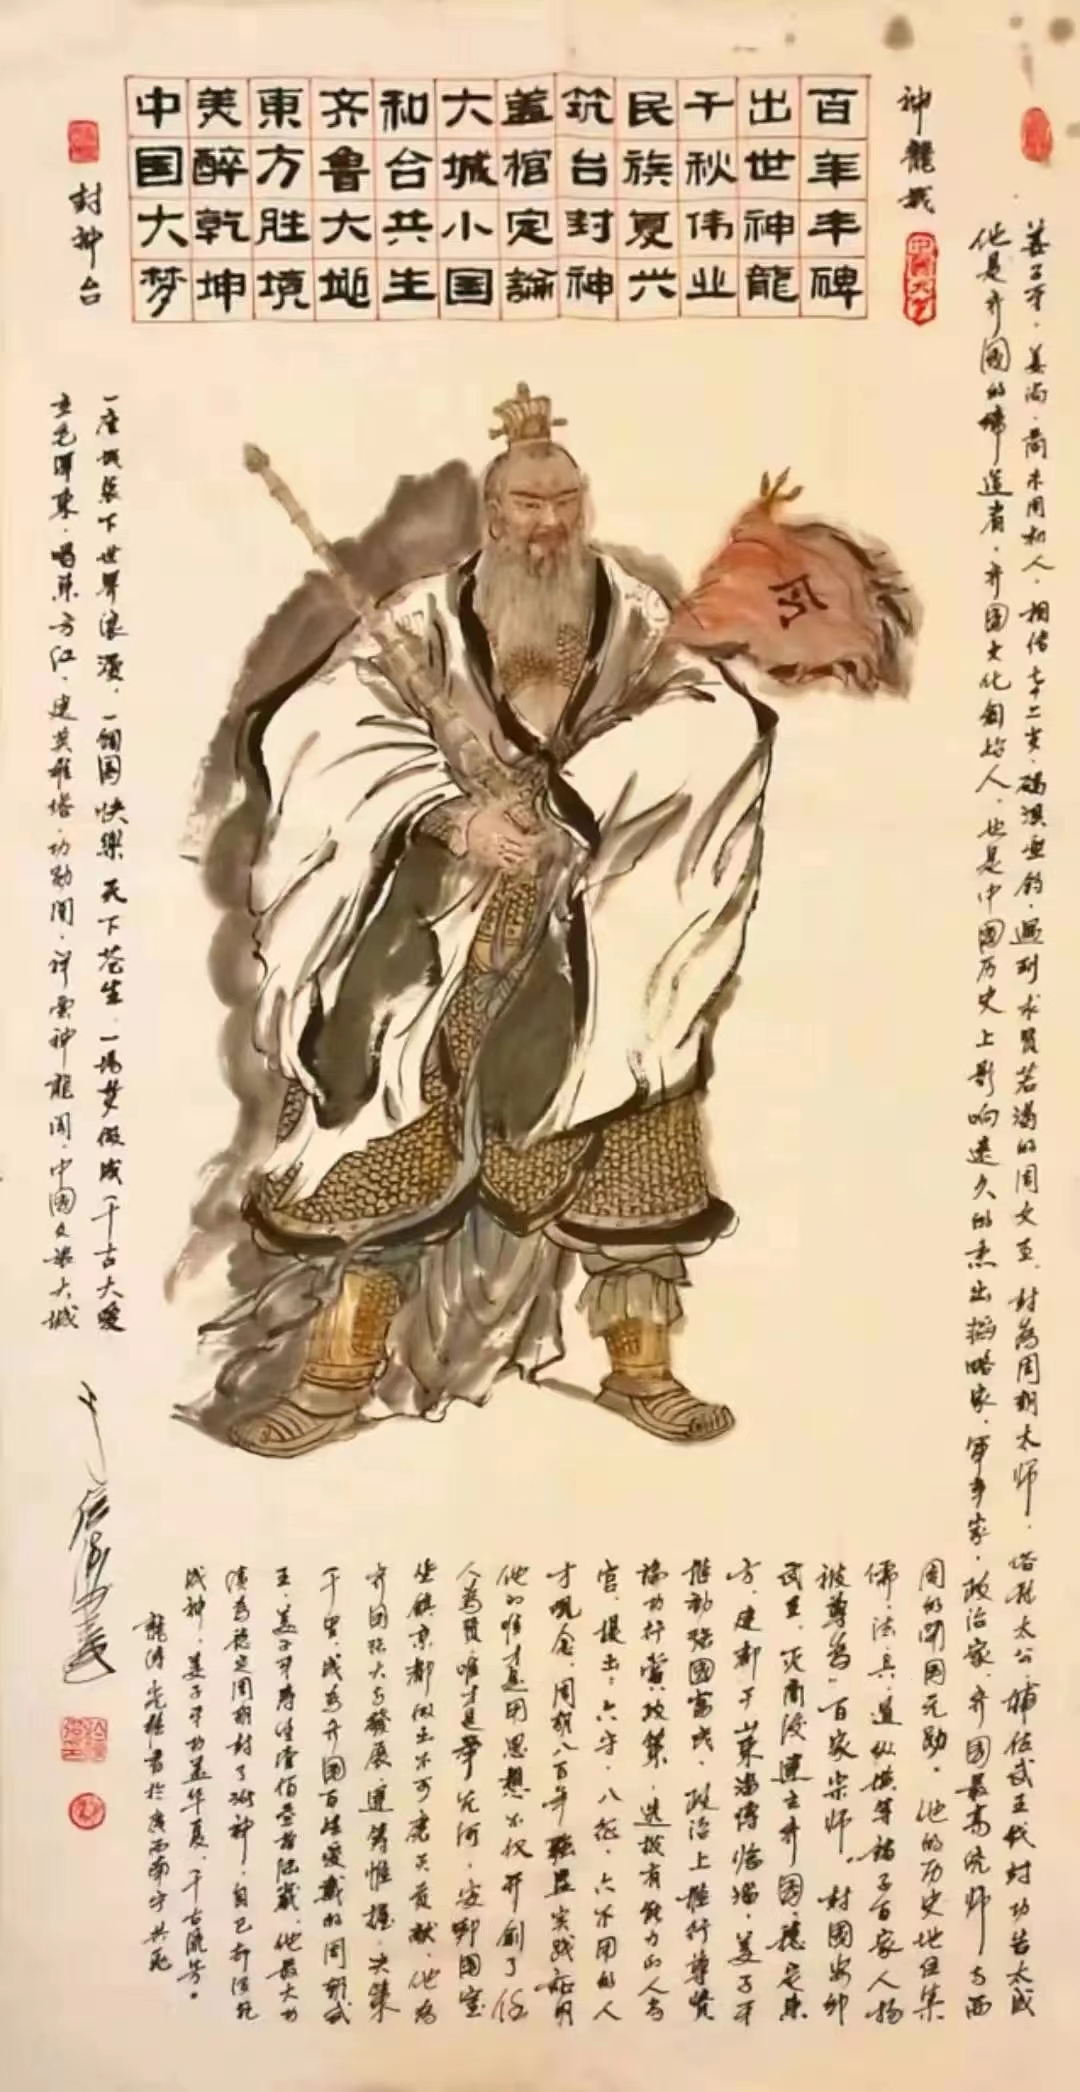 神龍城
百年丰碑
出世神龍
千秋伟业
民族复兴
筑台封神
蓋棺定論
大城小国
和合共生
齐鲁大地
東方胜境
美醉乾坤
中国大梦
封神台
令
姜子牙，姜尚，商末周初人，相传七十二岁，磻溪垂钓，遇到求贤若渴的周文王，封为周朝太师，俗称太公，辅佐武王伐纣功告大成
他是齐國的缔造者，齐国文化創始人，也是中國历史上影响遠久的杰出韬略家，军事家，政治家，齐國最高统师与西
周的開国元勋。他的历史地位集
儒，法，兵，道，纵横等諸子百家人物
被尊為"百家宗师"。封國安邦
武王，灭商後建立齐國，穩定東
方，建都于山東淄博临淄，姜子牙
推动强國富民，政治上推行尊贤
論功行賞政策，选拔有能力的人為
官，提出：六守，八征，六不用的人
才观念，周朝八百年強盛实践証明
他的唯才是用思想不仅开創了任
人為贤，唯才是舉先河，安邦国室
坐鎮京都做出不可磨灭贡献，他為
齐国强大与發展，運筹帷握，决策
千里，成為齐国百姓愛戴的周朝武
王，姜子牙寿生壹佰叁拾陆歲，他最大功
績為穩定周朝封了诸神，自己却沒死
成神，姜子牙功盖华夏，千古流芳。
一座城装下世界浪漫，一個国快樂天下苍生，一場梦做成千古大愛
立毛澤東，唱東方红，建英雄塔，功勋閣，祥雲神龍閣，中國文樂大城